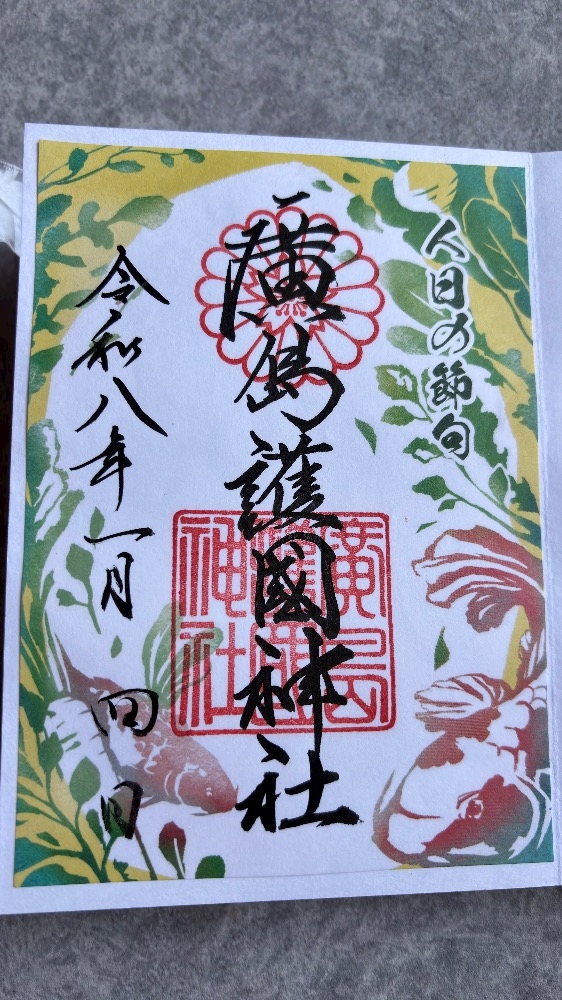 人日の節句
廣島護國神社
廣島護國神社
令和八年一月四日